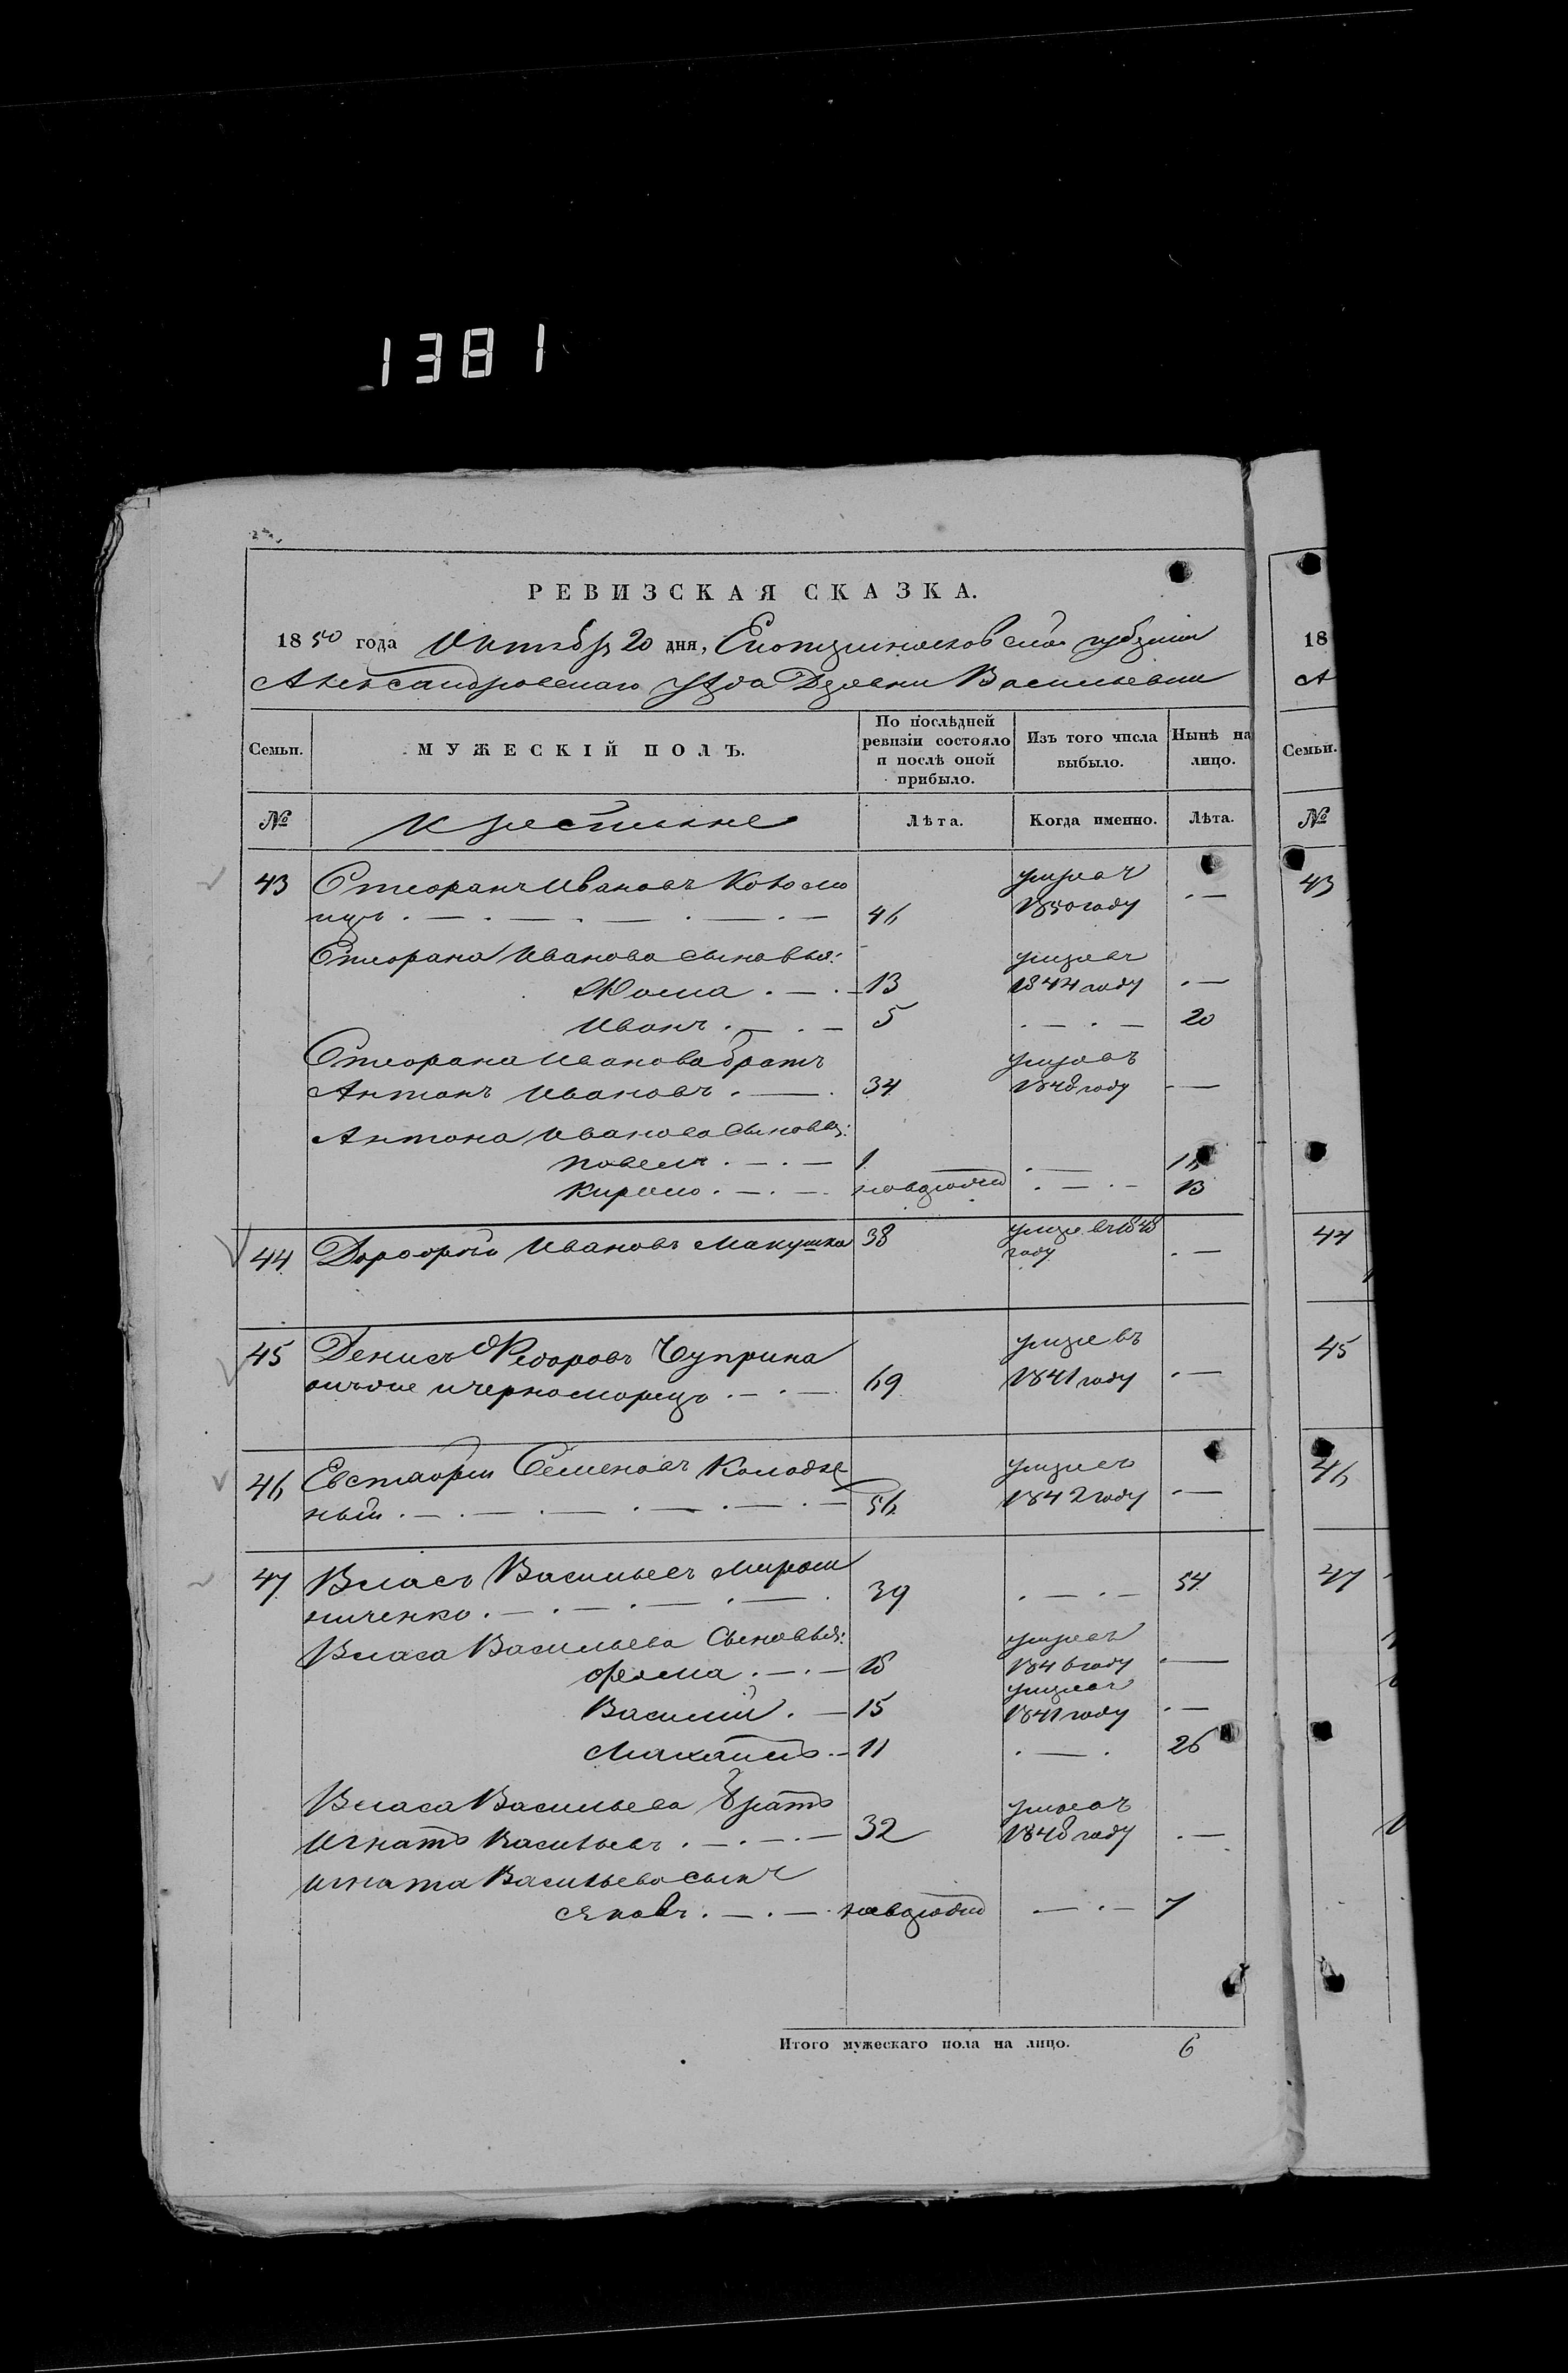 1381
РЕВИЗСКАЯ СКАЗКА.
1850 года Октября 20 дня, Екатеринославской губернии
Александровскаго уѣзда Деревни Васильевки
Семьи. МУЖЕСКІЙ ПОЛЪ. По послѣдней ревизіи состояло и послѣ оной прибыло. Изъ того числа выбыло. Нынѣ на лицо.
№ Крестьяне Лѣта. Когда именно. Лѣта.
43 Стефанъ Ивановъ Коломи умре въ
ецъ . — . — . — . — 46 1850 году . —
Стефана Иванова сыновья: умре въ
Фома . — . — 13 1844 году . —
Иванъ . — . — 5 . — . — 20
Стефана Иванова братъ умре въ
Антонъ Ивановъ . — . 34 1848 году —
Антона Иванова сыновья:
Павелъ . — . — 1 . — 16
Кирило . — . — новорожден . — . — 13
44 Дорофей Ивановъ Макушка 38 умре въ 1848
году . —
45 Денисъ Федоровъ Чуприна умре въ
онъ же и черноморецъ . — . — 69 1841 году . —
46 Евстафій Семеновъ Колодяж умре въ
ный . — . — . — . — . — 56 1842 году . —
47 Власъ Васильевъ Мирош
ниченко . — . — . — . — . 39 . — . — 54
Власа Васильева Сыновья: умре въ
Фома . — . — 18 1846 году . —
умре въ
Василій . — 15 1841 году . —
Макаръ . — 11 . — . 26
Власа Васильева Братъ умре въ
Игнатъ Васильевъ . — . — . — 32 1848 году . —
Игната Васильева сынъ
Яковъ . — . — . новорожден — . — 7
Итого мужескаго пола на лицо. 6
18
А
Семьи.
№
43
44
45
46
47